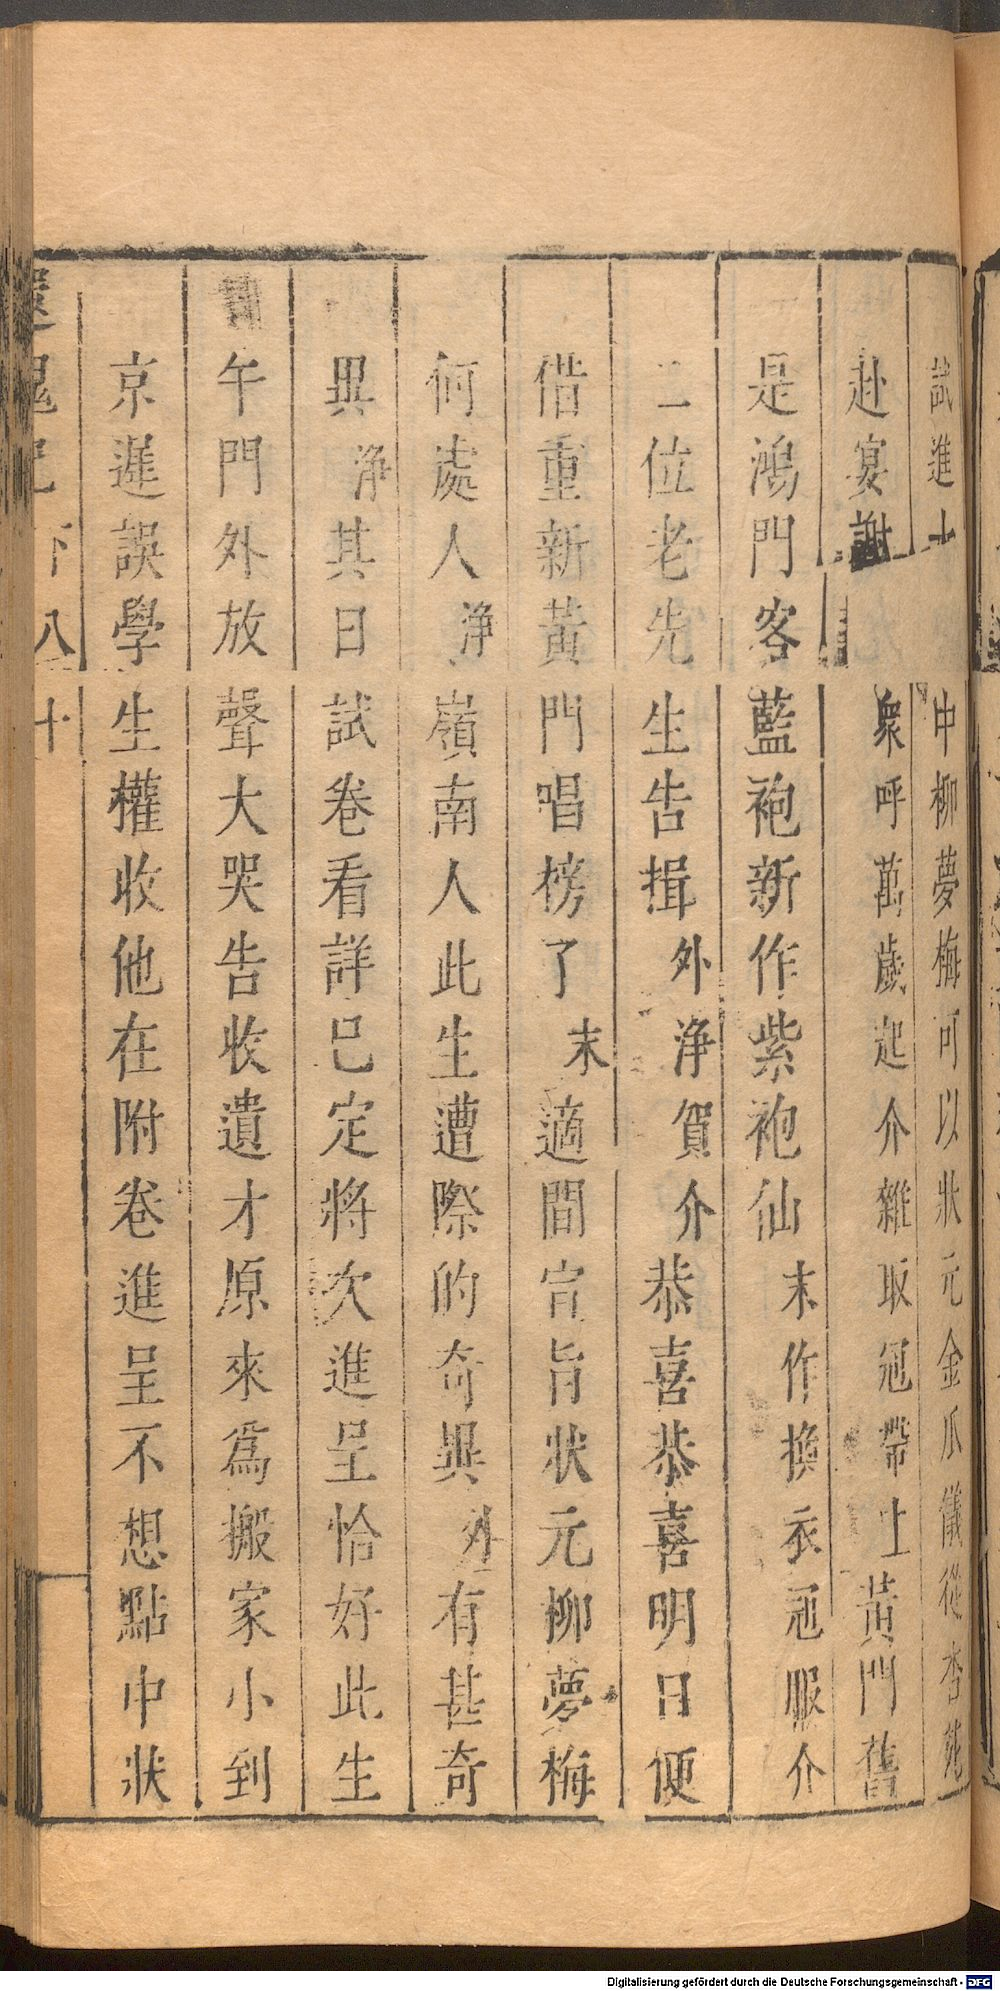 試進士 中柳夢梅可以狀元金瓜儀從杏苑
赴宴謝 衆呼萬歲起介雜取冠帶上黃門舊
是鴻門客藍袍新作紫袍仙末作換衣冠服介
二位老先生告揖外净賀介恭喜恭喜明日便
借重新黃門唱榜了末適間宣旨狀元柳夢梅
何處人净嶺南人此生遭際的奇異外有甚奇
異净其日試卷看詳已定將次進呈恰好此生
午門外放聲大哭告收遺才原來爲搬家小到
京遲誤學生權收他在附卷進呈不想點中狀
還魂記下 八十
Digitalisierung gefördert durch die Deutsche Forschungsgemeinschaft - DFG